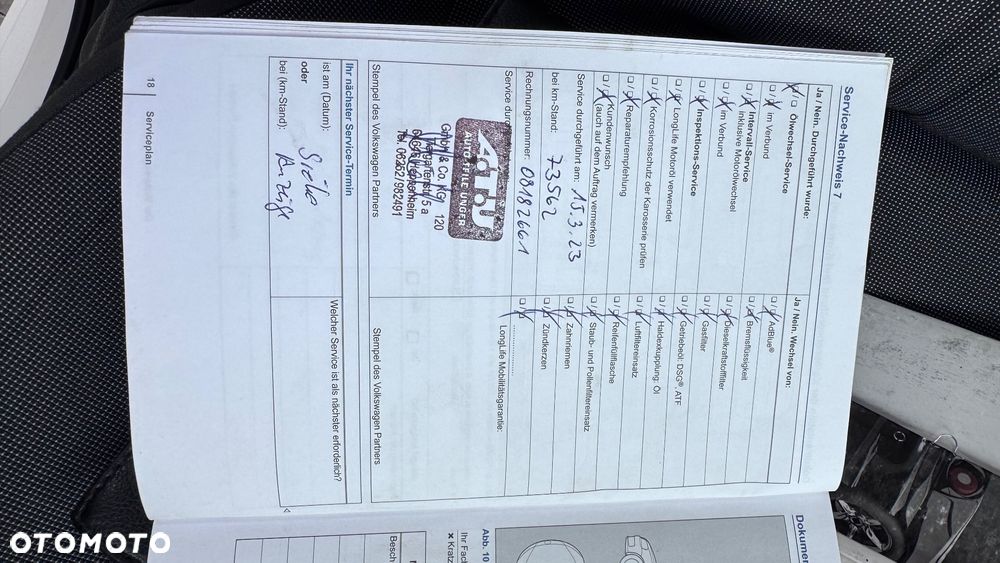 Service-Nachweis 7
Ja / Nein. Durchgeführt wurde:
☐ / ☐ Ölwechsel-Service
☐ / ☐ im Verbund
☐ / ☐ Intervall-Service
inklusive Motorölwechsel
☐ / ☐ im Verbund
☐ / ☐ Inspektions-Service
☐ / ☐ LongLife Motoröl verwendet
☐ / ☐ Korrosionsschutz der Karosserie prüfen
☐ / ☐ Reparaturempfehlung
☐ / ☐ Kundenwunsch
(auch auf dem Auftrag vermerken)
Service durchgeführt am: 15.3.23
bei km-Stand: 73562
Rechnungsnummer: 08182661
Service
AUTOTEILE UNGER
GmbH & Co. KG 120
5 a
Tel. 06252/982491
Stempel des Volkswagen Partners
Ja / Nein. Wechsel von:
☐ / ☐ AdBlue®
☐ / ☐ Bremsflüssigkeit
☐ / ☐ Dieselkraftstofffilter
☐ / ☐ Gasfilter
☐ / ☐ Getriebeöl: DSG® ATF
☐ / ☐ Haldexkupplung: Öl
☐ / ☐ Luftfiltereinsatz
☐ / ☐ Reifenfüllflasche
☐ / ☐ Staub- und Pollenfiltereinsatz
☐ / ☐ Zahnriemen
☐ / ☐ Zündkerzen
☐ / ☐ ..............................
LongLife Mobilitätsgarantie:
Stempel des Volkswagen Partners
Ihr nächster Service-Termin
ist am (Datum): Siehe
oder
bei (km-Stand): Anzeige
Welcher Service ist als nächster erforderlich?
18 Serviceplan
Dokumen
Abb. 10
Ihr Fach
× Kratz
Besch
OTOMOTO